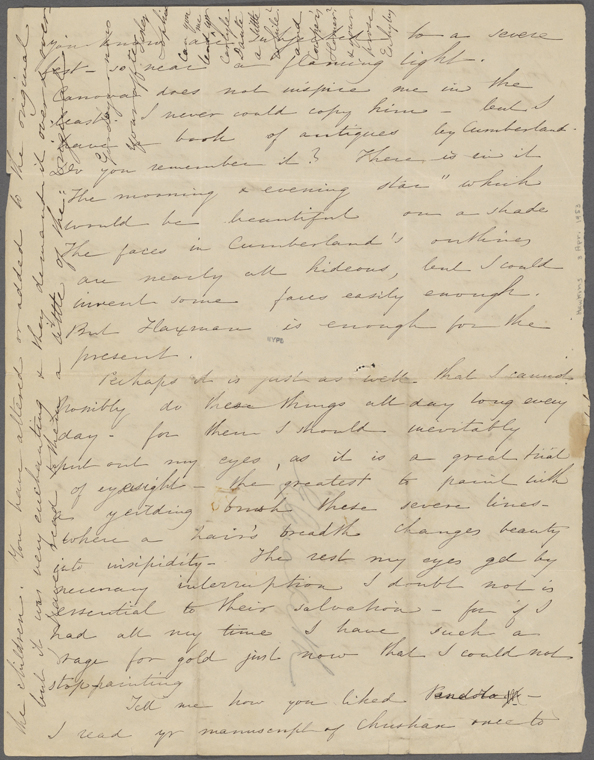 to a severe
test - so near a flaming light.
Canova does not inspire me in the
least. I never could copy him - but I
have a book of antiques by Cumberland.
Do you remember it? There is in it
"The morning & evening star" which
would be beautiful on a shade
The faces in Cumberland's outlines
are nearly all hideous, but I could
invent some faces easily enough.
But Flaxman is enough for the
present.
Perhaps it is just as well that I cannot
Possibly do these things all day long every
day - for them I should inevitably
put out my eyes, as it is a great trial
of eyesight - the greatest to paint with
a yeilding brush these severe lines -
where a hair's breadth changes beauty
into insipidity - The rest my eyes get by
necessary interruption I doubt not is
essential to their salvation - for if I
had all my time I have such a
rage for gold just now that I could not
stop painting
Tell me how you liked Pandora -
I read yr manuscript of Christian once to
the children. You have altered or added to the original
but it was very enchanting & they demand it over & over
a little of the
Can you
me
Carlyle's
Dante
a little
and
Sophia